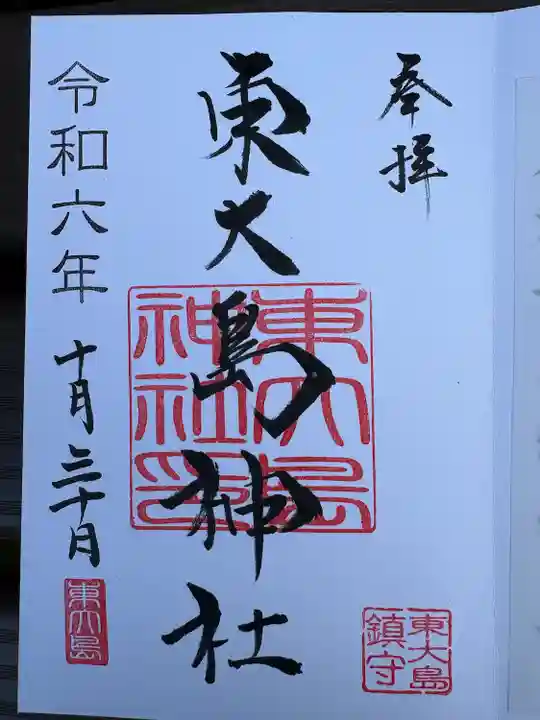 奉拝
東大島神社
東大島
神社印
東大島
鎮守
令和六年
十月三十日
東大島